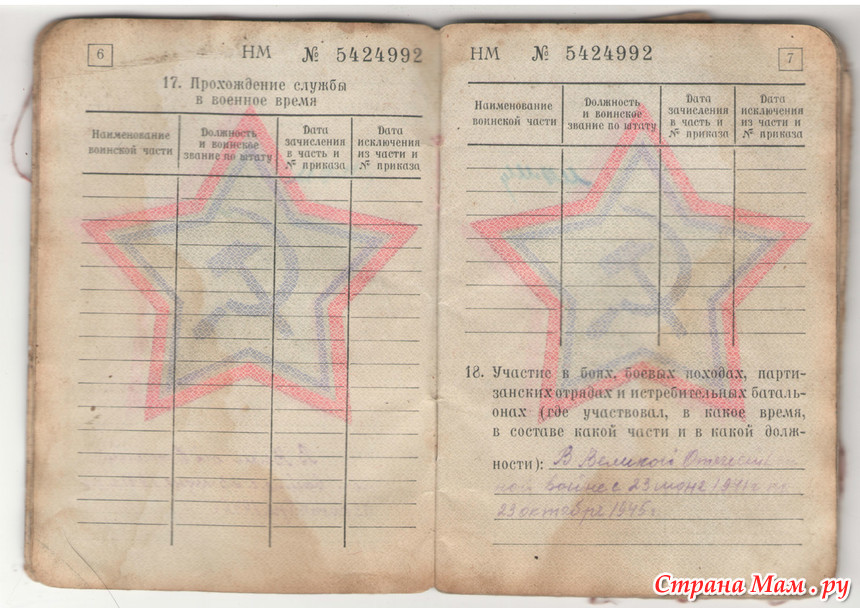 6
НМ № 5424992
17. Прохождение службы
в военное время
Наименование воинской части
Должность и воинское звание по штату
Дата зачисления в часть и № приказа
Дата исключения из части и № приказа
НМ № 5424992
7
Наименование воинской части
Должность и воинское звание по штату
Дата зачисления в часть и № приказа
Дата исключения из части и № приказа
18. Участие в боях, боевых походах, парти-
занских отрядах и истребительных баталь-
онах (где участвовал, в какое время,
в составе какой части и в какой долж-
ности): В Великой Отечествен
ной войне с 23 июня 1941 г по
23 октября 1945 г.
Страна Мам.ру